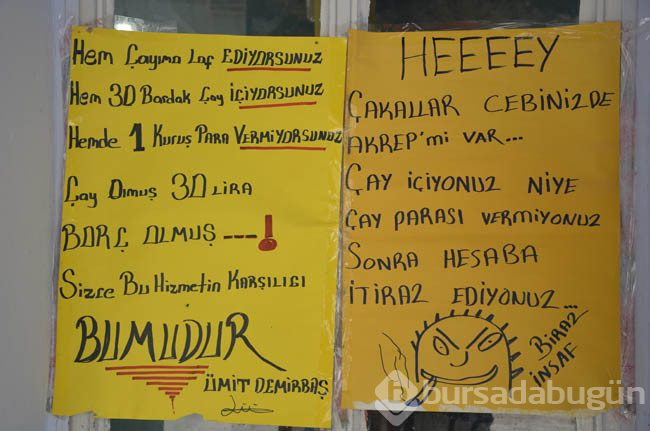 Hem Çayıma Laf EDİYORSUNUZ
Hem 30 Bardak Çay İÇİYORSUNUZ
Hemde 1 Kuruş Para VERMİYORSUNUZ
Çay Olmuş 30 LİRA
BORÇ OLMUŞ ---!
Sizce Bu Hizmetin KARŞILIGI
BUMUDUR
ÜMİT DEMİRBAŞ
HEEEEY
ÇAKALLAR CEBİNİZDE
AKREP'mi VAR...
ÇAY İÇİYONUZ NİYE
ÇAY PARASI VERMİYONUZ
SONRA HESABA
İTİRAZ EDİYONUZ...
BİRAZ
İNSAF
bursadabugün